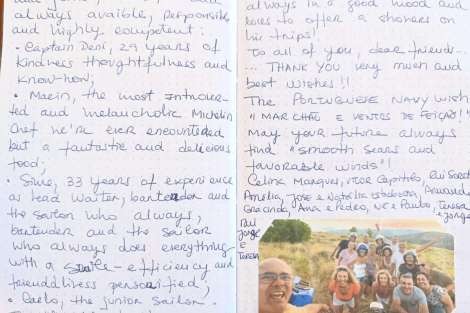 always avaible, responsible
and highly competent:
• Captain Deni, 29 years of
kindness thoughtfulness and
know-how;
• Marin, the most introver-
ted and melancholic Michelin
Chef we're ever encountered
but a fantastic and delicious
food;
• Sime, 33 years of experience
as lead waiter, bartender and
the sailor who always,
bartender and the sailor
who always does everything
with a smile - efficiency and
frienddliness personified;
the junior sailor.
always in a good mood and
to offer a
his trips!
To all of you, dear friends...
... THANK YOU very much and
best wishes!!
The PORTUGUESE NAVY wish
"MAR CHÃO E VENTOS DE FEIÇÃO!"
May your future always
find "smooth sears and
favorable winds"!
Celina Marques, Vitor
Amélia, José e Natália
Gracinda, Ana e Pedro, e Paulo, Teresa
e Jorge
Rui
Jorge
E
Teresa